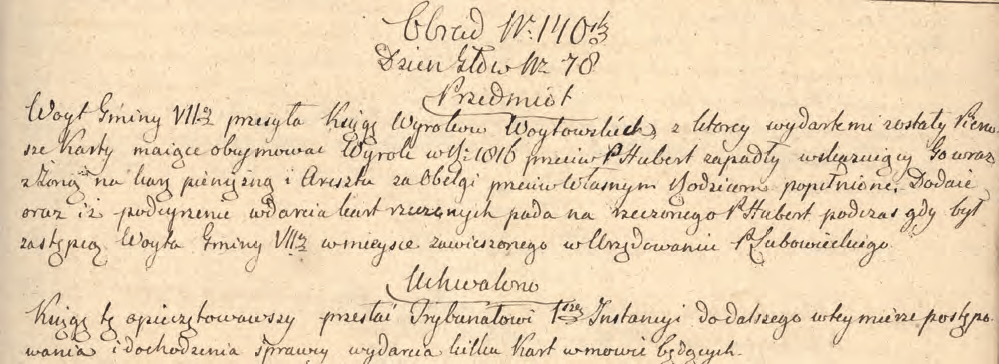 Obrad Nr. 140
Dzien: Głów Nr 78
Przedmiot
Woyt Gminy VII przesyła Księgę Wyroków Woytowskich, z ktorey wydartemi zostały Pierw-
sze Karty maiące obeymować Wyrok w R: 1816 przeciw P Hubert zapadły wskazuiący Go wraz
z Żoną na karę pieniężną i Aresztu za obelgi przeciw Własnym Rodzicom popełnione. Dodaie
oraz iż podeyrzenie wdarcia kart rzeczonych pada na rzeczonego P. Hubert podczas gdy był
zastępcą Woyta Gminy VII w mieysce zawieszonego w Urzędowaniu P. Lubowieckiego.
Uchwalono
Księgę tę opieczętowawszy przesłać Trybunałowi 1szey Instancyi do dalszego w tey mierze postępo-
wania i dochodzenia sprawy wydarcia kilku Kart w mowie będących.